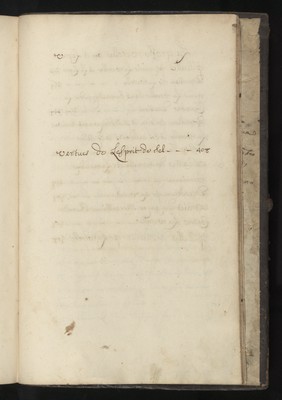 V
Vertus de Lesprit de sel - - - 408